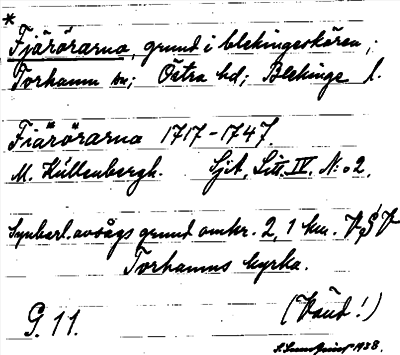 *
Fjärörarna, grund i blekingeskären;
Torhamn sn; Östra hd; Blekinge l.
Fiärörarna 1717-1747.
M. Küllenbergh. SjA, Litt. IV. N:o 2.
Synberl. avsågs grund omkr. 2,1 km. V
Torhamns kyrka.
G. 11. (Vänd!)
1938.